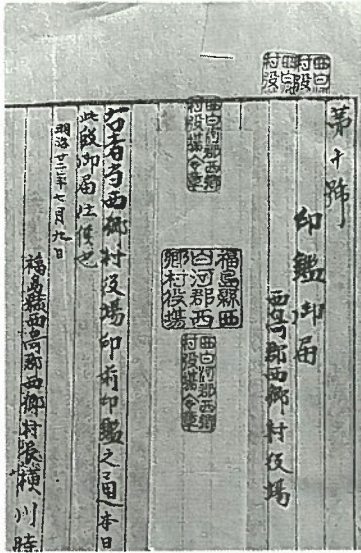 第十號
印鑑御届
西白河郡西郷村役場
福島縣西
白河郡西
郷村役場
西白河郡西郷
村役場合章
西白河郡西郷
村役場合章
右者当西郷村役場印影印鑑之通本日
此段御届仕候也
明治廿二年七月九日
福島縣西白河郡西郷村長横川時